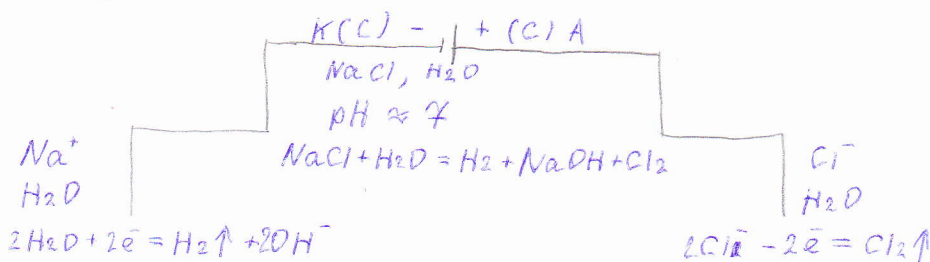 K(C) - + (C) A
NaCl, H2O
pH ≈ 7
NaCl + H2O = H2 + NaOH + Cl2
Na⁺
H2O
2H2O + 2ē = H2↑ + 2OH⁻
Cl⁻
H2O
2Cl⁻ - 2ē = Cl2↑